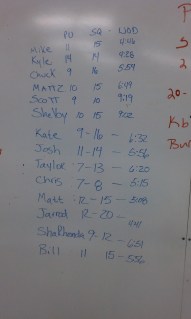 PU SQ - WOD
Mike 11 15 4:46
Kyle 14 14 4:28
Chuck 9 16 5:59
MATTZ 10 15 6:49
SCOTT 9 10 9:19
Shelby 10 15 8:02
Kate 9-16 - 6:32
Josh 11-14 - 5:56
Taylor 7-13 - 6:20
Chris 7-8 - 6:15
Matt 12-15 - 3:48
Jarred 12-20 -
ShaRhonda 9-12 - 6:31
Bill 11 15 - 5:56
P
5
2
20-
Kb
Bur